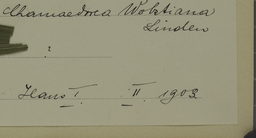 Chamaedorea Wobstiana
Linden
?
Haus I. II. 1903.